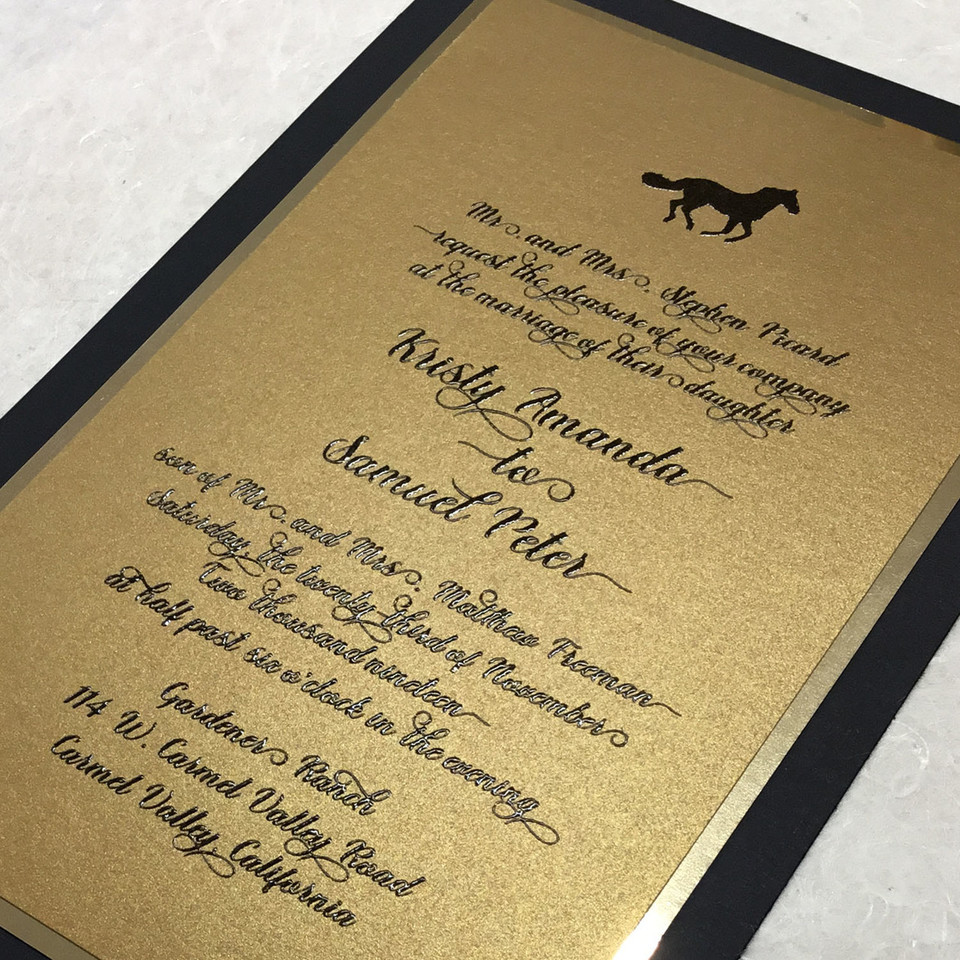 Mr. and Mrs. Stephen Picard
request the pleasure of your company
at the marriage of their daughter
Kristy Amanda
to
Samuel Peter
son of Mr. and Mrs. Matthew Freeman
Saturday, the twenty third of November
Two thousand nineteen
at half past six o'clock in the evening
Gardener Ranch
114 W. Carmel Valley Road
Carmel Valley, California